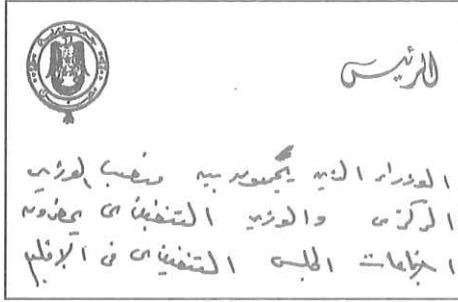 الرئيس
الوزراء الذين يجمعون بين منصب الوزير
المركزى والوزير التنفيذى يحضرون
اجتماعات المجلس التنفيذى فى الإقليم